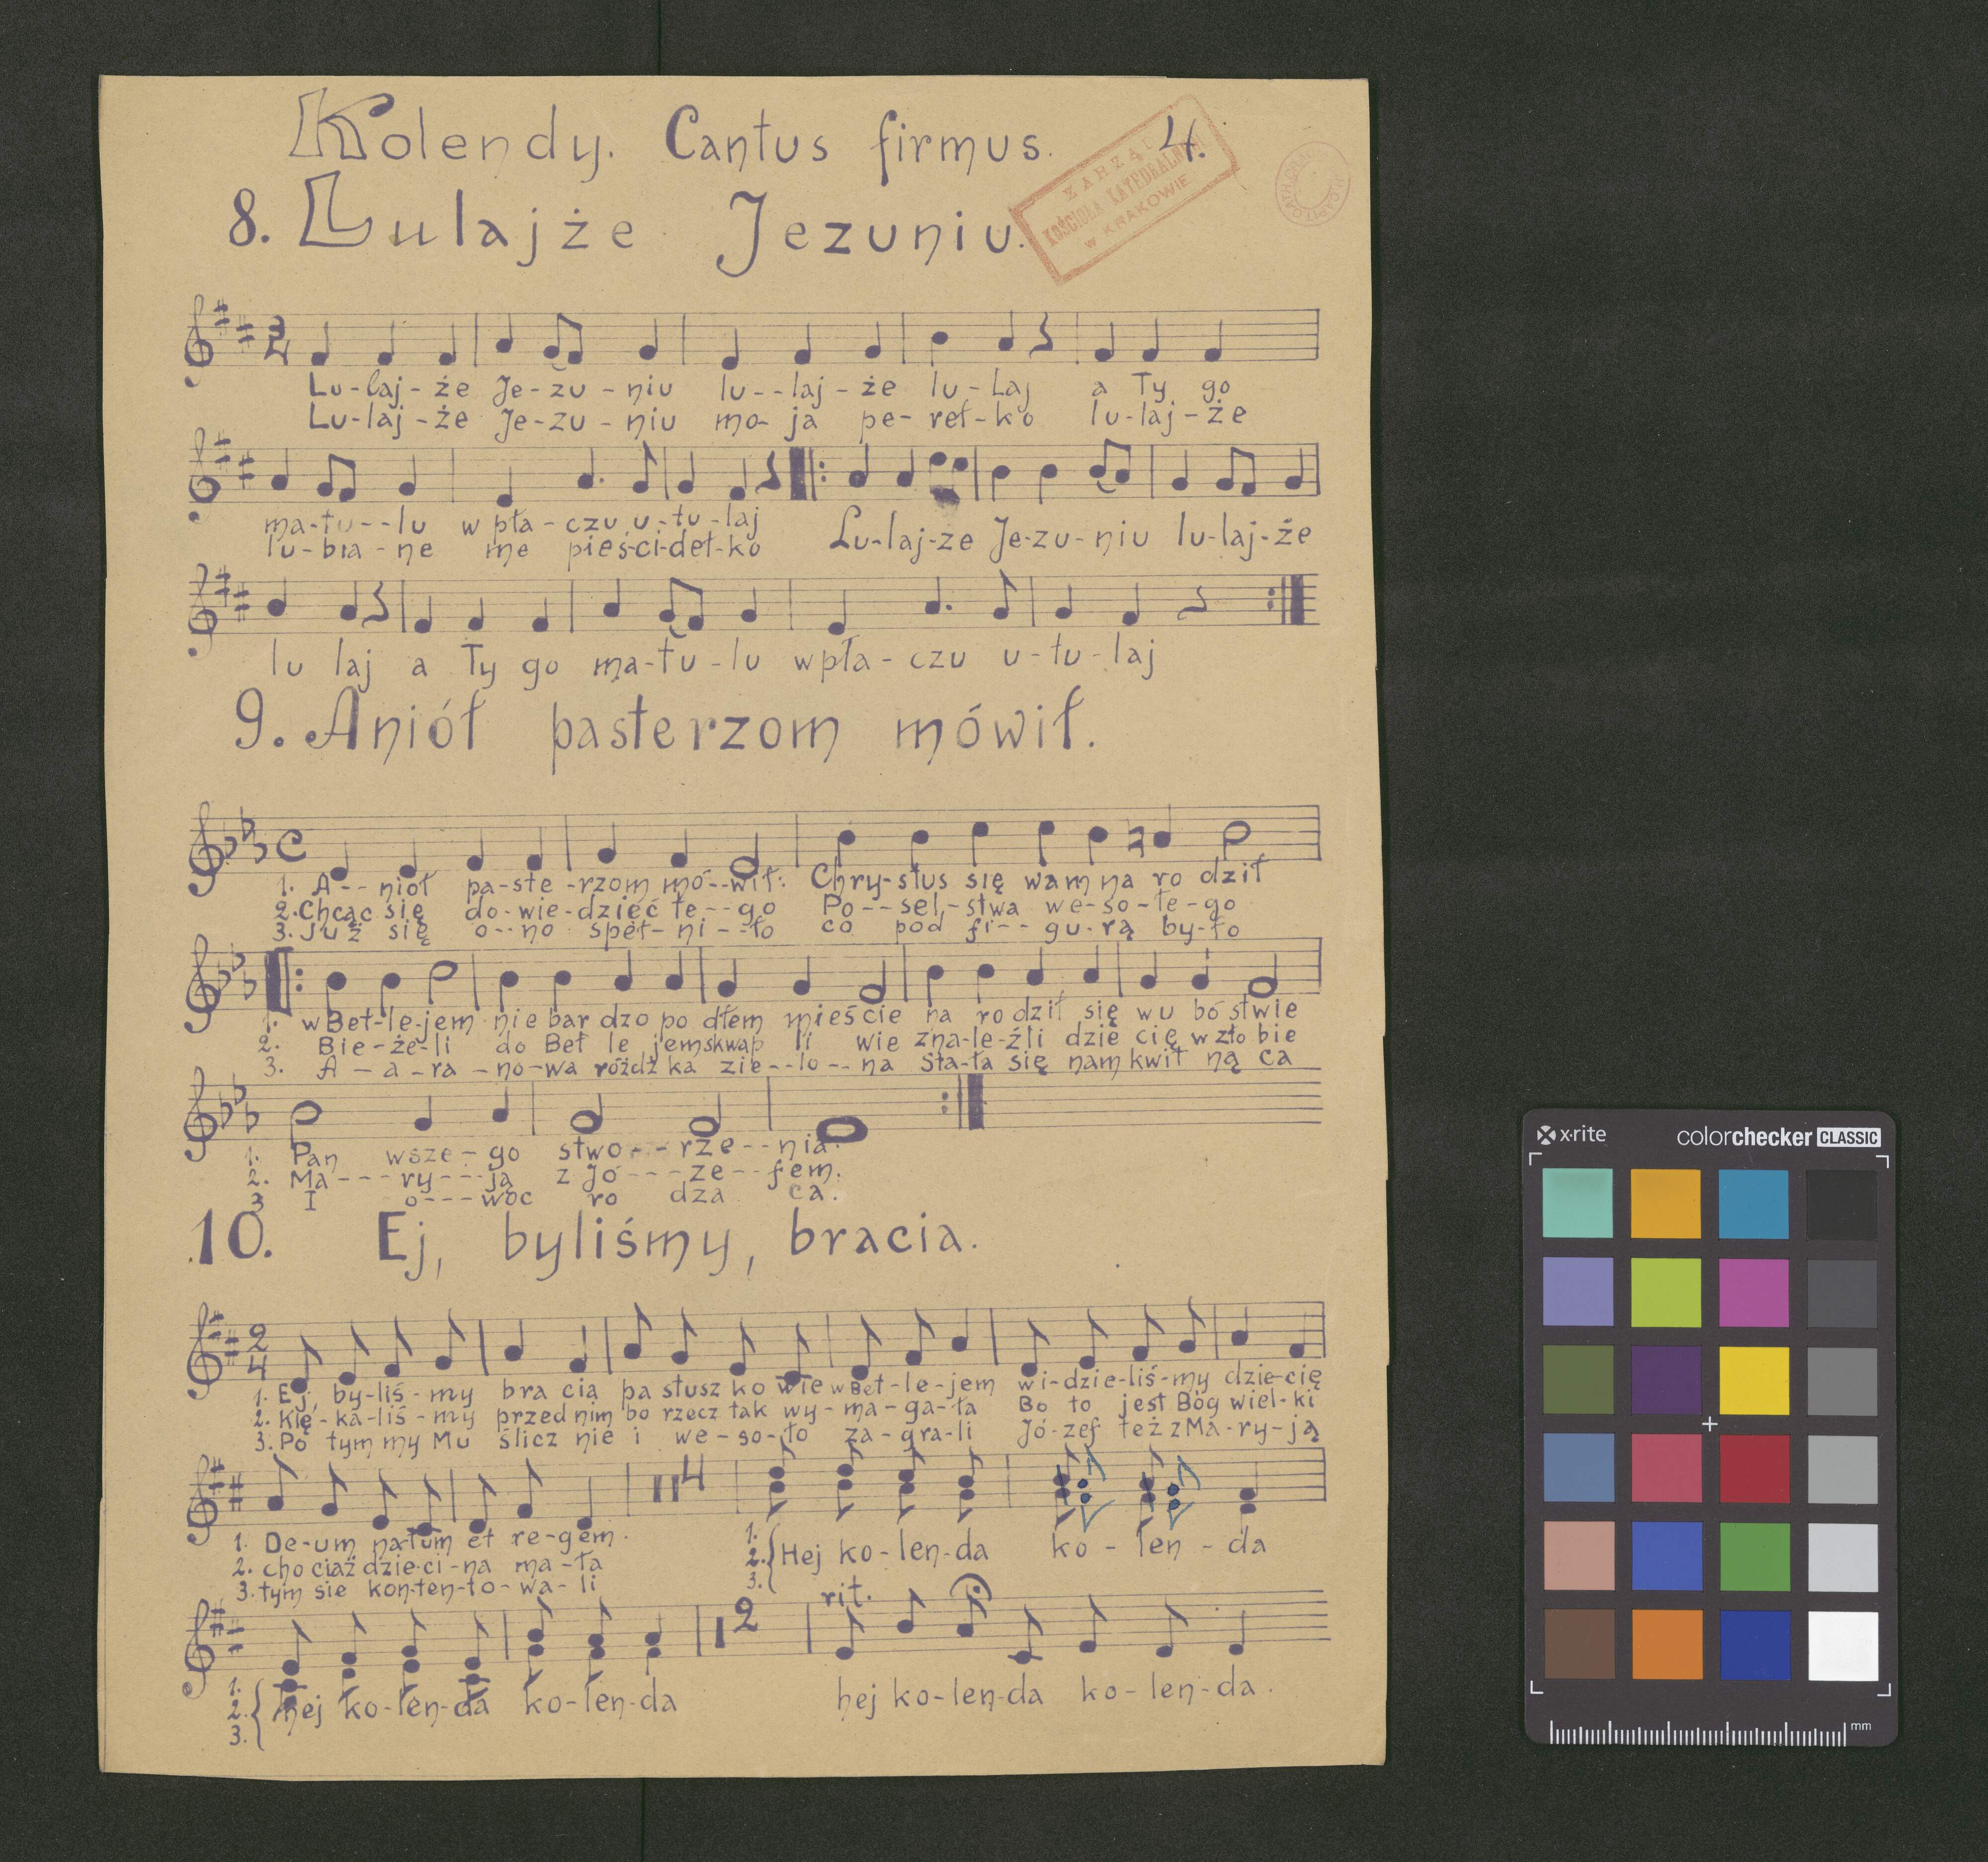 Kolendy. Cantus firmus. 4.
ZARZĄD
KOŚCIOŁA KATEDRALNEGO
W KRAKOWIE
8. Lulajże Jezuniu.
3/4
Lu-laj-że Je-zu-niu lu--laj-że lu-laj a Ty go
Lu-laj-że Je-zu-niu mo-ja pe-reł-ko lu-laj-że
ma-tu--lu w pła-czu u-tu-laj
lu-bia-ne me pieś-ci-deł-ko Lu-laj-że Je-zu-niu lu-laj-że
lu laj a Ty go ma-tu-lu wpła-czu u-tu-laj
9. Aniół pasterzom mówił.
C
1. A--nioł pa-ste-rzom mó--wił: Chry-stus się wam na ro dził
2. Chcąc się do-wie-dzieć te--go Po--sel-stwa we-so-łe-go
3. Już się o--no speł-ni--ło co pod fi--gu-rą by-ło
1. w Bet-le-jem nie bar dzo po dłem mieście na ro dził się wu bó stwie
2. Bie-że-li do Bet le jem skwap li wie zna-le-źli dzie cię w zło bie
3. A-a-ra-no-wa różdż ka zie--lo--na Sta-ła się nam kwit ną ca
1. Pan wsze-go stwo---rze--nia.
2. Ma---ry---ja z Jó---ze--fem.
3 I o---woc ro dza ca.
10. Ej, byliśmy, bracia.
2/4
1. Ej, by-liś-my bra cia pa stusz ko wie w Bet-le-jem wi-dzie-liś-my dzie-cię
2. Klę-ka-liś-my przed nim bo rzecz tak wy-ma-ga-ła Bo to jest Bóg wiel-ki
3. Po tym my Mu ślicz nie i we-so-ło za-gra-li Jó-zef też z Ma-ry-ją
4
1. De-um na-tum et re-gem.
2. cho ciaż dzie-ci-na ma-ła
3. tym sie kon-ten-to-wa-li
1.
2. Hej ko-len-da ko-len-da
3.
2 rit.
1.
2. hej ko-len-da ko-len-da hej ko-len-da ko-len-da.
3.
x-rite colorchecker CLASSIC
mm